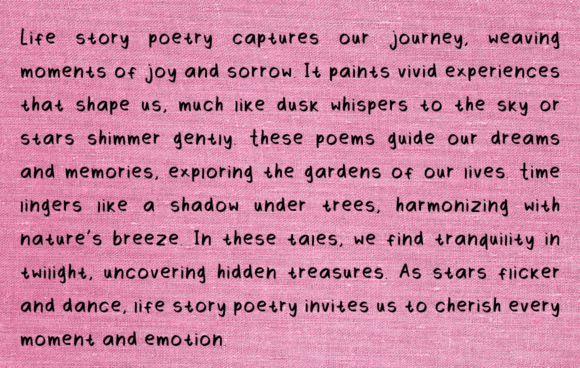 Life story poetry captures our journey, weaving
moments of joy and sorrow. It paints vivid experiences
that shape us, much like dusk whispers to the sky or
stars shimmer gently. These poems guide our dreams
and memories, exploring the gardens of our lives. Time
lingers like a shadow under trees, harmonizing with
nature's breeze. In these tales, we find tranquility in
twilight, uncovering hidden treasures. As stars flicker
and dance, life story poetry invites us to cherish every
moment and emotion.